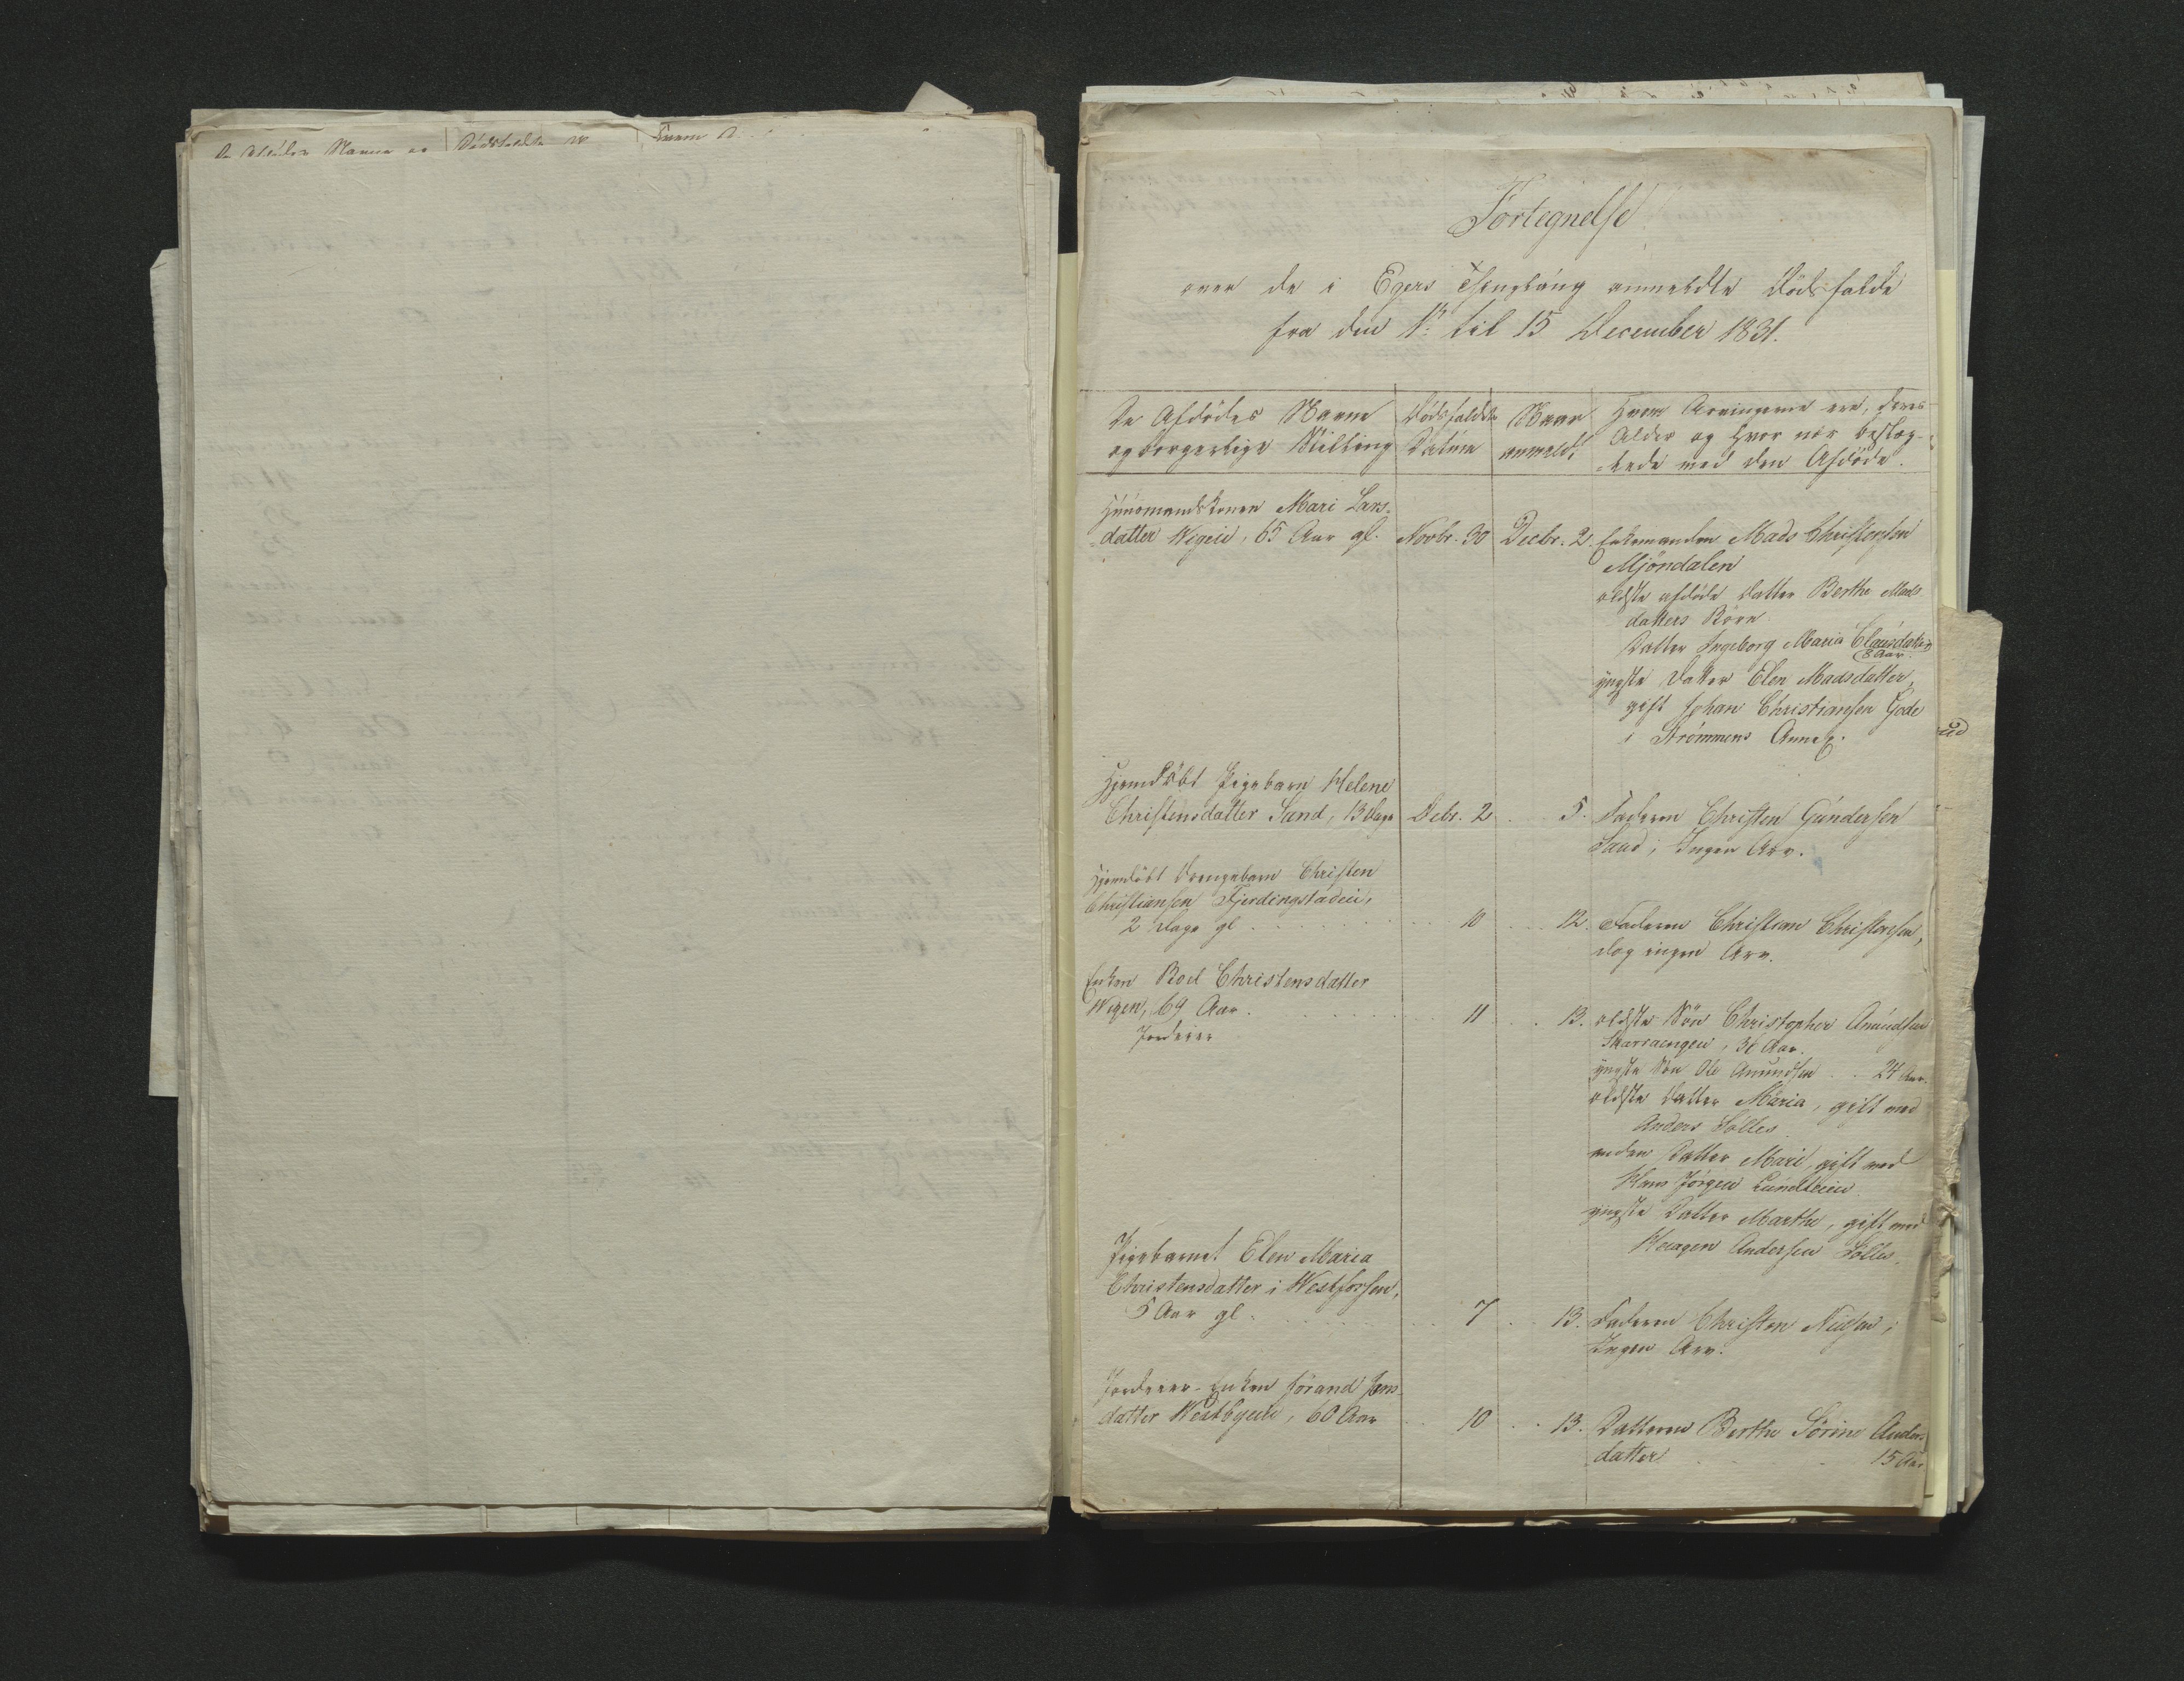 De Afdødes Navne og
Dødsfaldets
Hvem
Fortegnelse
over de i Egers Thinglaug anmeldte Dödsfalde
fra den 1ste til 15 December 1831.
De Afdödes Navne
og borgerlige Stilling
Dödsfaldets
Datum
Naar
anmeldt
Hvem Arvingerne ere, deres
Alder og hvor nær beslæg-
=tede med den Afdöde.
Huusmandskonen Mari Lars-
=datter Wigen, 65 Aar gl.
Novbr. 30
Decbr. 2.
Enkemanden Mads Christensen
Mjöndalen
ældste afdöde Datter Berthe Mads-
datters Börn
Datter Ingeborg Maria Clausdatter
8 Aar.
yngste Datter Elen Madsdatter,
gift Johan Christiansen Gode
i Strömmens Annex.
Hjemdöbt Pigebarn Helene
Christensdatter Sand, 13 Dage
Debr. 2
5.
Faderen Christen Gundersen
Sand; Ingen Arv.
Hjemdöbt Drengebarn Christen
Christiansen Fjerdingstadeie,
2 Dage gl
10
12.
Faderen Christian Christensen,
dog ingen Arv.
Enken Boel Christensdatter
Wigen, 69 Aar.
Jordeier
11
13.
ældste Sön Christopher Amundsen
Skarraengen, 36 Aar.
yngste Sön Ole Amundsen 24 Aar.
ældste Datter Maria, gift med
Anders Solles
anden Datter Mari, gift med
Hans Jörgen
yngste Datter Marthe, gift med
Haagen Andersen Solles.
Pigebarnet Elen Maria
Christensdatter i Westfossen,
5 Aar gl.
7
13.
Faderen Christen Nielsen;
Ingen Arv.
Jordeier-Enken Jörand
datter Westbyeie, 60 Aar
10
13.
Datteren Berthe Sörine Anders-
datter 15 Aar